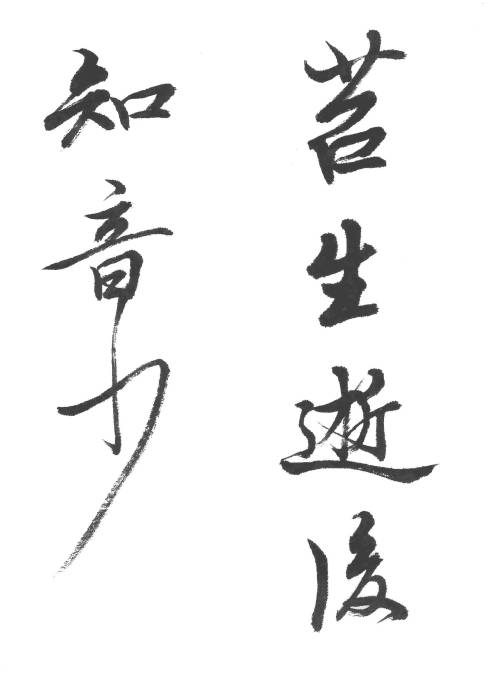 苕生逝後
知音少